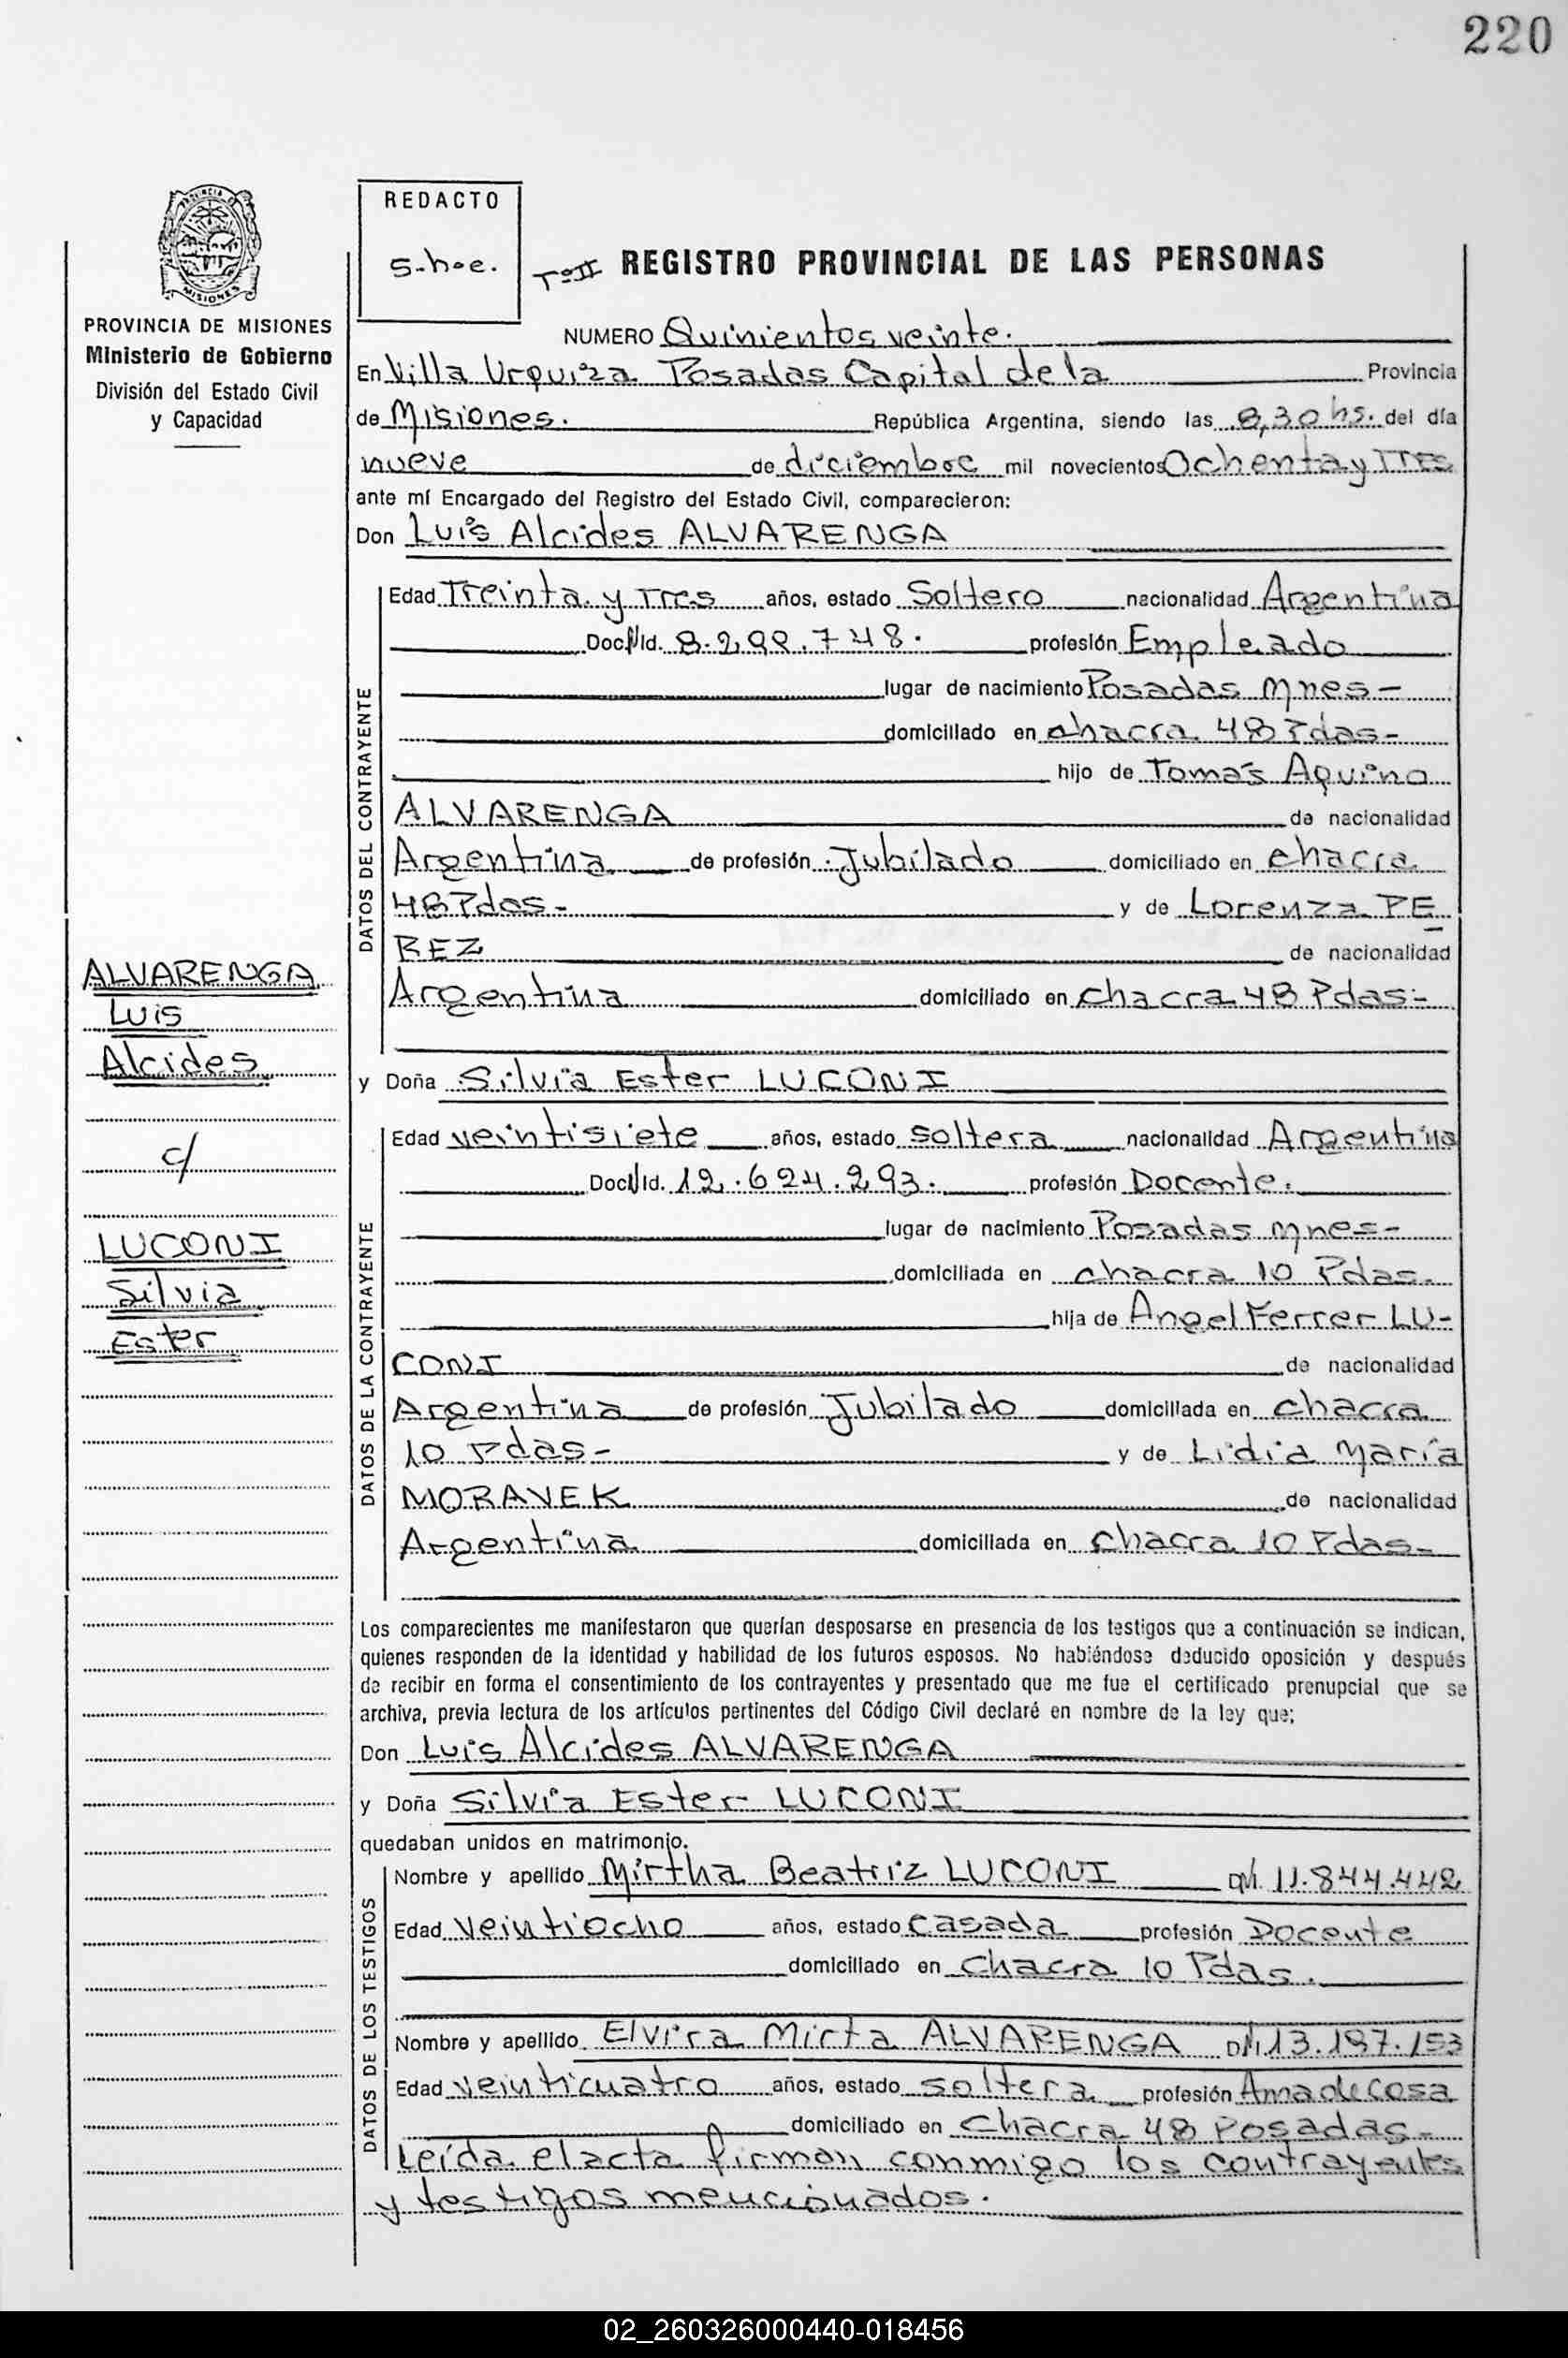 220
REDACTO
PROVINCIA DE MISIONES
Ministerio de Gobierno
División del Estado Civil
y Capacidad
REGISTRO PROVINCIAL DE LAS PERSONAS
NUMERO Quinientos veinte.
En Villa Urquiza Posadas Capital de la Provincia
de Misiones. República Argentina, siendo las 8,30 hs. del día
nueve de diciembre mil novecientos Ochenta y Tres
ante mí Encargado del Registro del Estado Civil, comparecieron:
Don Luis Alcides ALVARENGA
DATOS DEL CONTRAYENTE
Edad Treinta y Tres años, estado Soltero nacionalidad Argentina
Doc. Id. 8.298.748. profesión Empleado
lugar de nacimiento Posadas Mnes-
domiciliado en chacra 48 Pdas-
hijo de Tomás Aquino
ALVARENGA de nacionalidad
Argentina de profesión Jubilado domiciliado en chacra
48 Pdas- y de Lorenza PE
REZ de nacionalidad
Argentina domiciliado en chacra 48 Pdas-
y Doña Silvia Ester LUCONI
DATOS DE LA CONTRAYENTE
Edad veintisiete años, estado soltera nacionalidad Argentina
Doc. Id. 12.624.293. profesión Docente.
lugar de nacimiento Posadas Mnes-
domiciliada en chacra 10 Pdas.
hija de Angel Ferrer LU-
CONI de nacionalidad
Argentina de profesión Jubilado domiciliada en chacra
10 Pdas- y de Lidia María
MORAVEK de nacionalidad
Argentina domiciliada en chacra 10 Pdas-
Los comparecientes me manifestaron que querían desposarse en presencia de los testigos que a continuación se indican,
quienes responden de la identidad y habilidad de los futuros esposos. No habiéndose deducido oposición y después
de recibir en forma el consentimiento de los contrayentes y presentado que me fue el certificado prenupcial que se
archiva, previa lectura de los artículos pertinentes del Código Civil declaré en nombre de la ley que;
Don Luis Alcides ALVARENGA
y Doña Silvia Ester LUCONI
quedaban unidos en matrimonio.
DATOS DE LOS TESTIGOS
Nombre y apellido Mirtha Beatriz LUCONI 11.844.442
Edad Veintiocho años, estado casada profesión Docente
domiciliado en Chacra 10 Pdas.
Nombre y apellido Elvira Mirta ALVARENGA 13.197.153
Edad Veinticuatro años, estado soltera profesión Ama de casa
domiciliado en Chacra 48 Posadas-
Leída el acta firman conmigo los contrayentes
y testigos mencionados.
ALVARENGA
Luis
Alcides
c/
LUCONI
Silvia
Ester
02_260326000440-018456